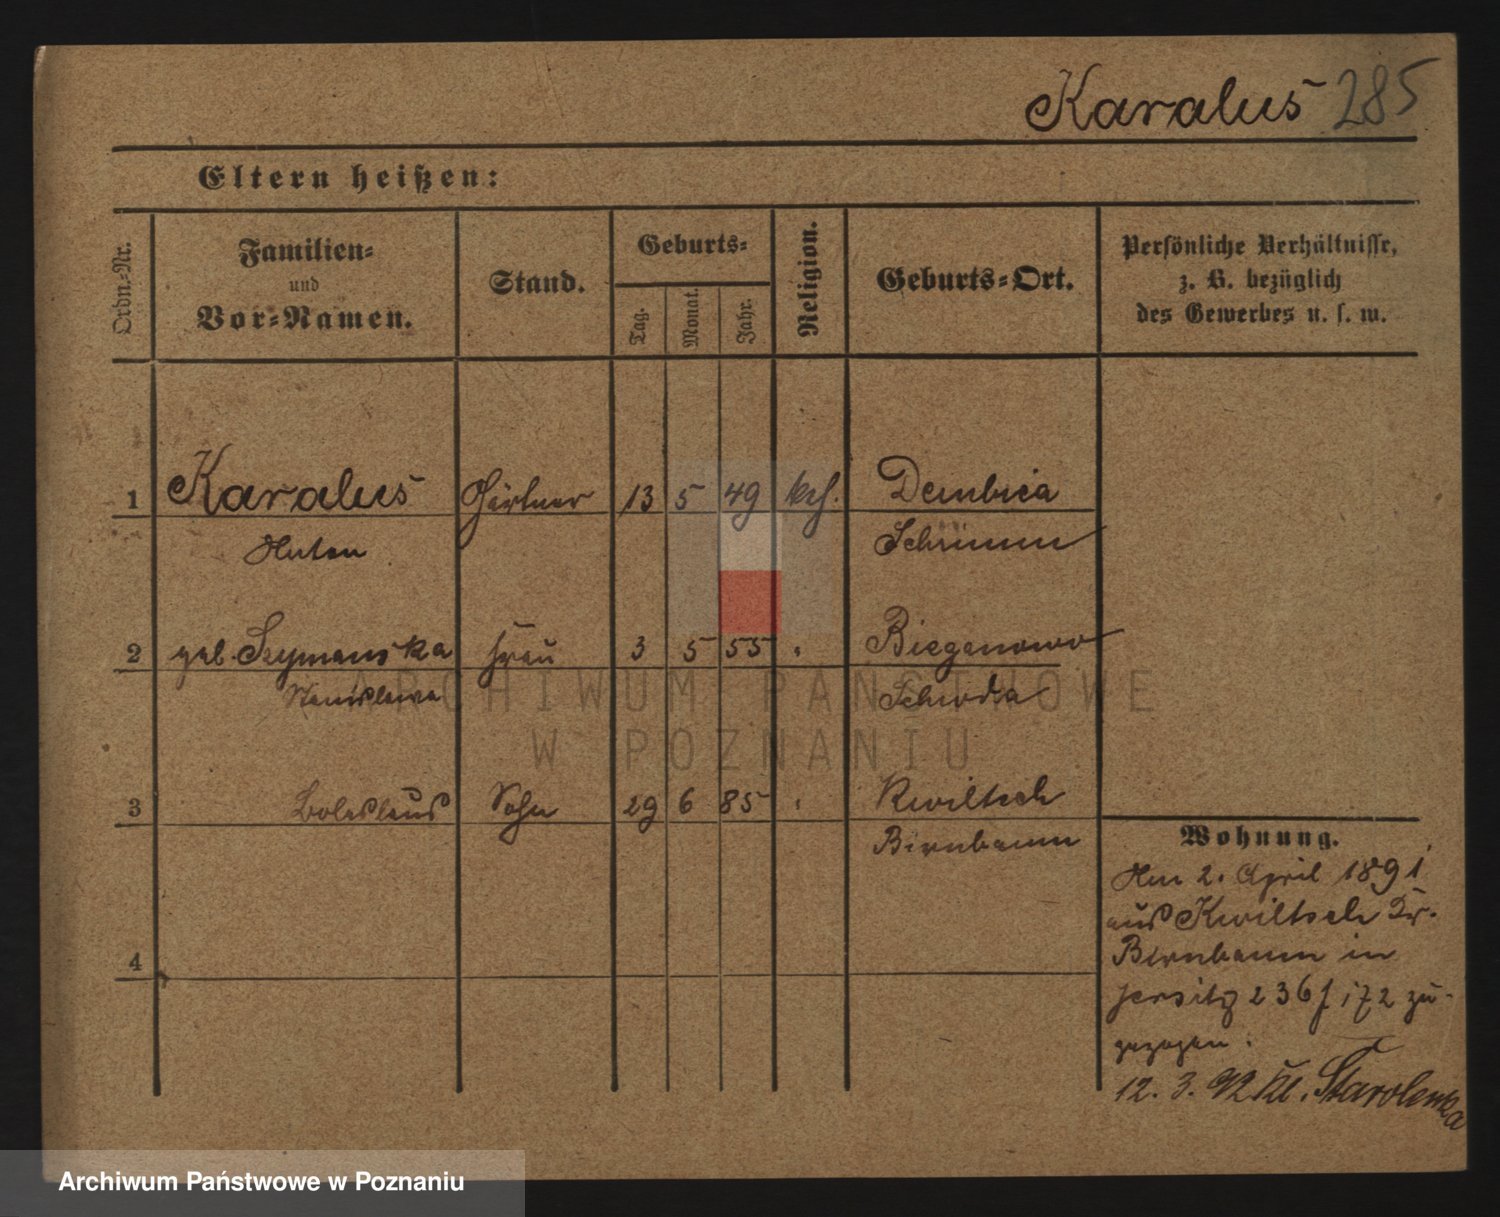 Karalus 285
Eltern heißen:
Ordn.-Nr.
Familien-
und
Vor-Namen.
Stand.
Geburts-
Tag.
Monat.
Jahr.
Religion.
Geburts-Ort.
Persönliche Verhältnisse,
z. B. bezüglich
des Gewerbes u. s. w.
1 Karalus Gärtner 13 5 49 kth. Dembica
Anton Schrimm
2 geb. Szymanska Frau 3 5 55 " Bieganowo
Stanislawa Schroda
3 Boleslaus Sohn 29 6 85 " Kwiltsch
Birnbaum
4
Wohnung.
Am 2. April 1891
aus Kwiltsch Kr.
Birnbaum in
Jersitz 236 f 172 zu-
gezogen.
12. 3. 92 Kl. Starolenka
ARCHIWUM PAŃSTWOWE
W POZNANIU
Archiwum Państwowe w Poznaniu